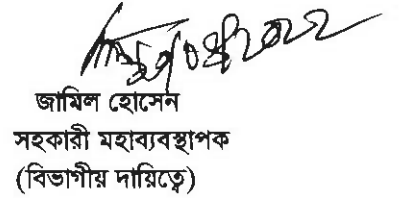 জামিল হোসেন
সহকারী মহাব্যবস্থাপক
(বিভাগীয় দায়িত্বে)